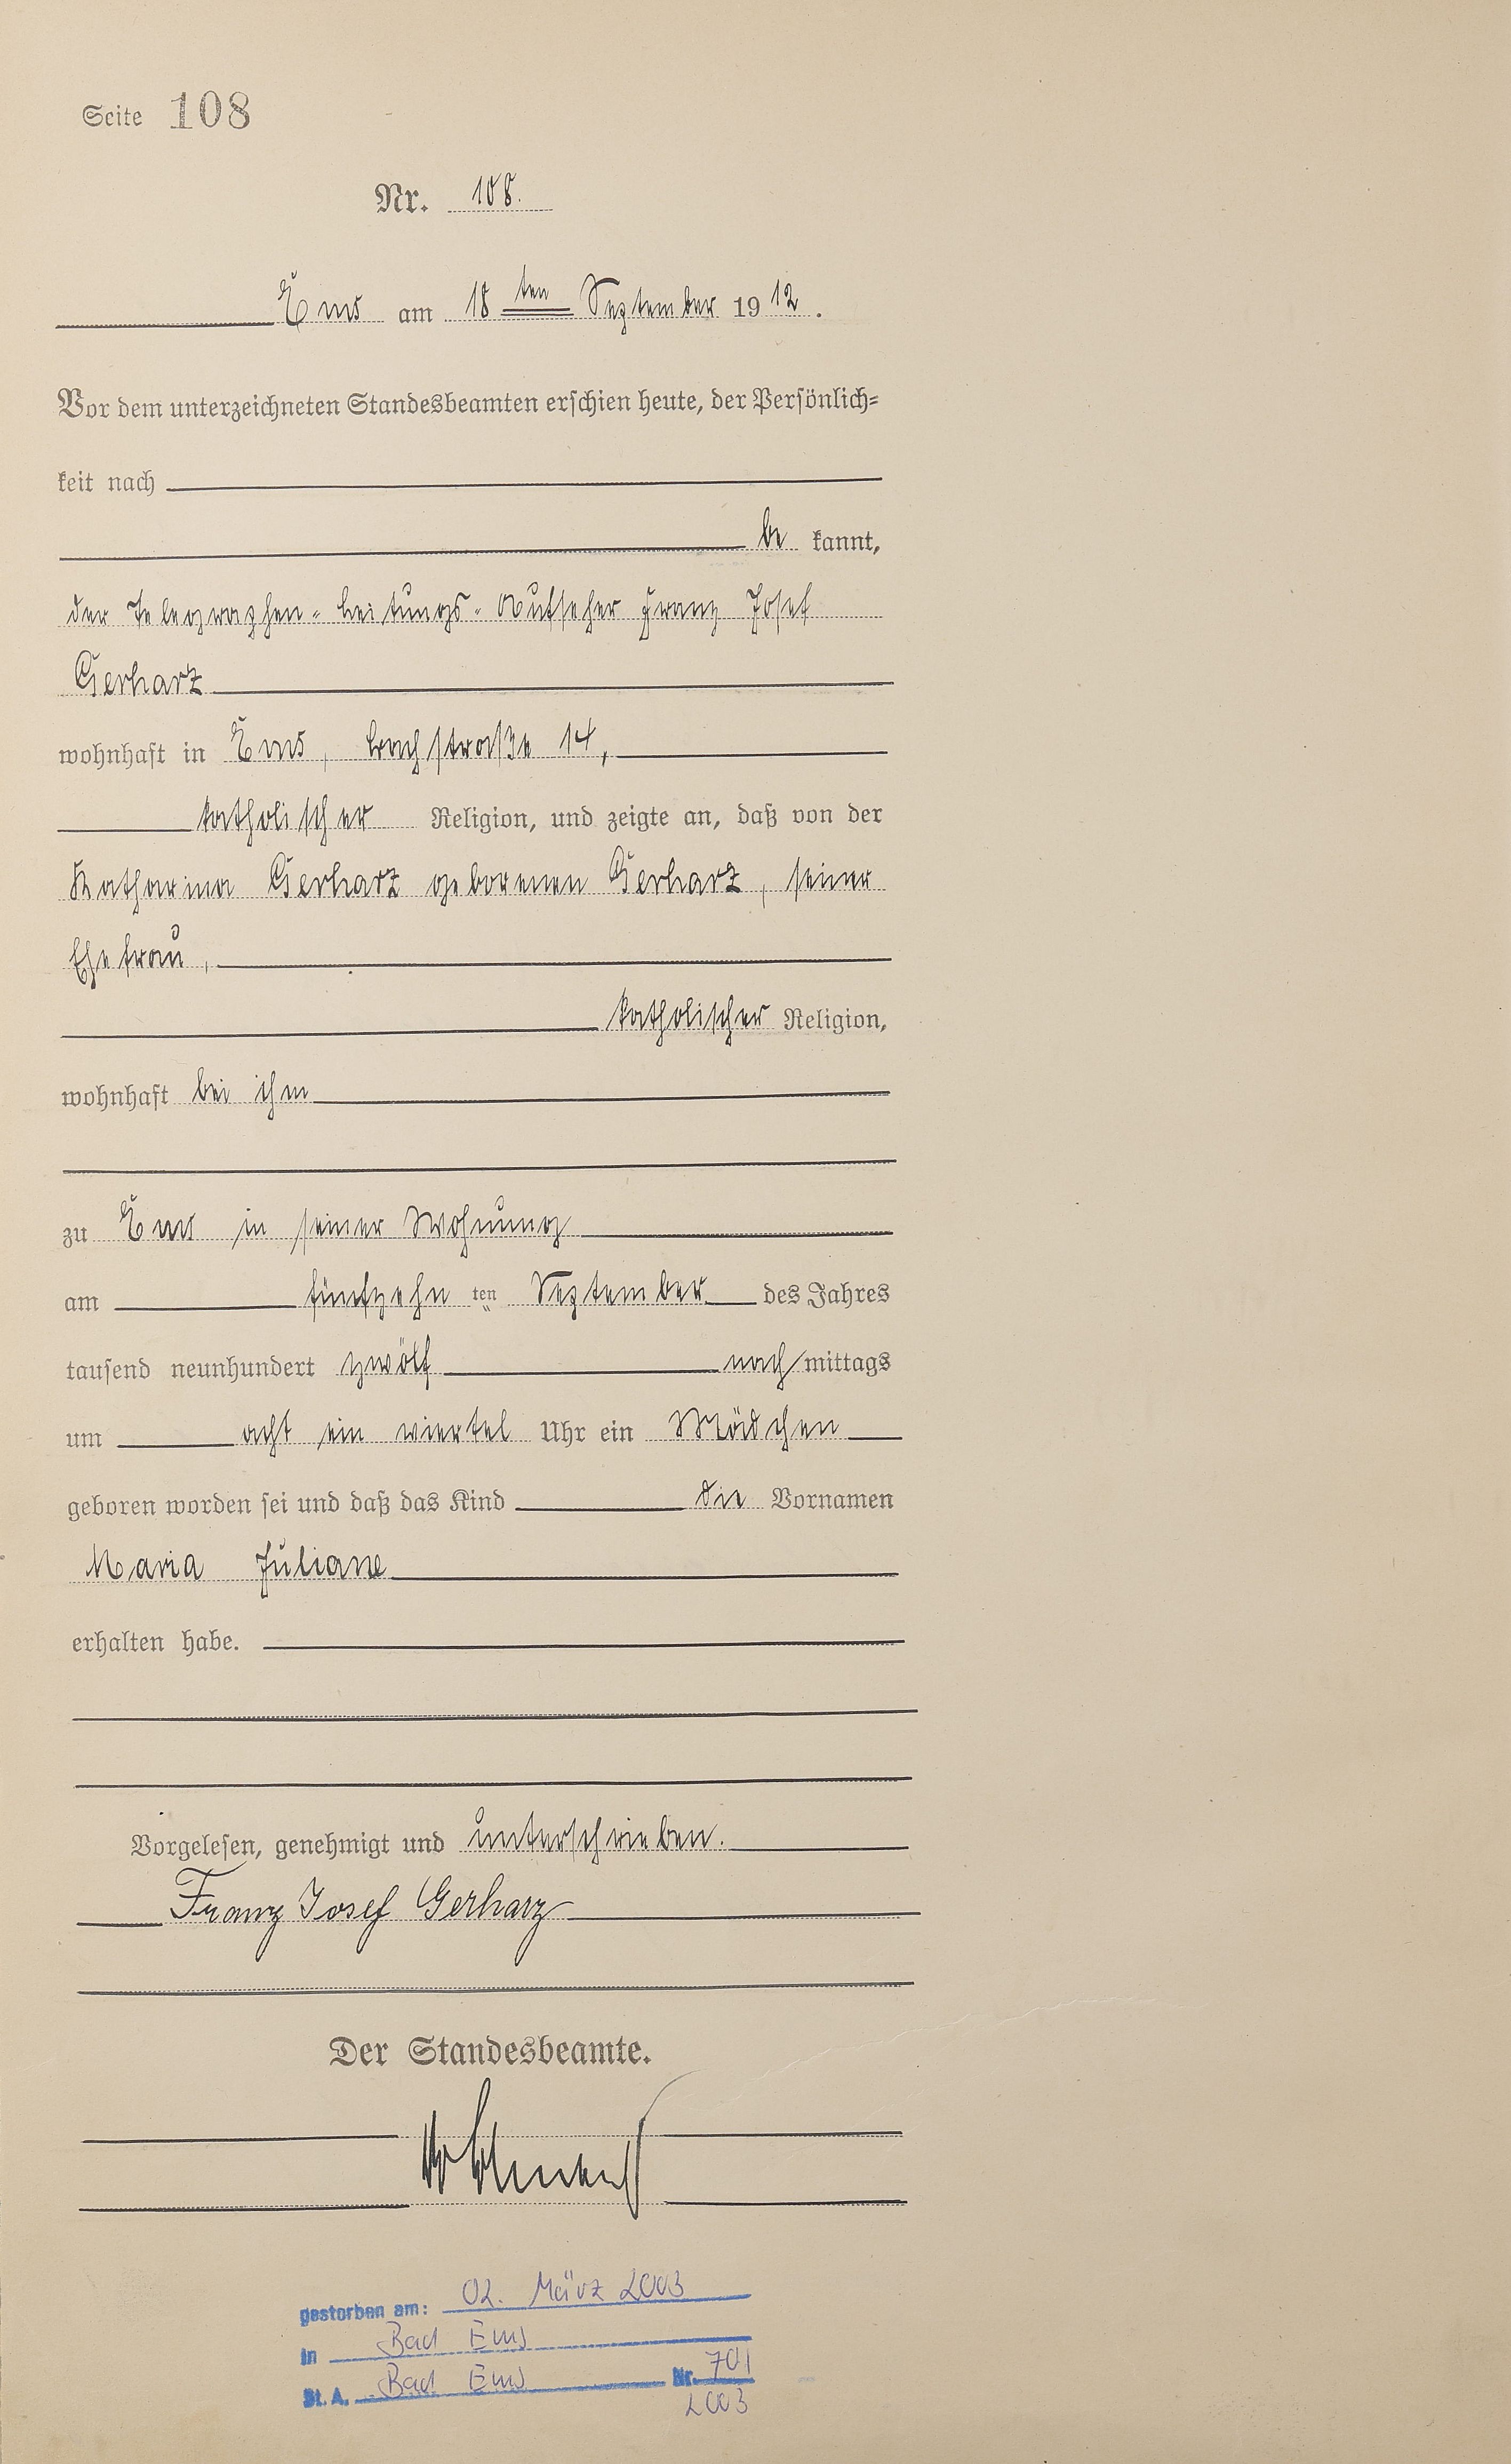 Seite 108
Nr. 108.
Ems am 18 ten September 1912.
Vor dem unterzeichneten Standesbeamten erschien heute, der Persönlich-
keit nach
be kannt,
der Telegraphen-Leitungs-Aufseher Franz Josef
Gerharz
wohnhaft in Ems, Bachstraße 14,
katholischer Religion, und zeigte an, daß von der
Katharina Gerharz geborenen Gerharz, seiner
Ehefrau,
katholischer Religion,
wohnhaft bei ihm
zu Ems in seiner Wohnung
am fünfzehn ten September des Jahres
tausend neunhundert zwölf nach mittags
um acht ein viertel Uhr ein Mädchen
geboren worden sei und daß das Kind die Vornamen
Maria Juliane
erhalten habe.
Vorgelesen, genehmigt und unterschrieben.
Franz Josef Gerharz
Der Standesbeamte.
gestorben am: 02. März 2003
in Bad Ems
St. A. Bad Ems Nr. 701
2003